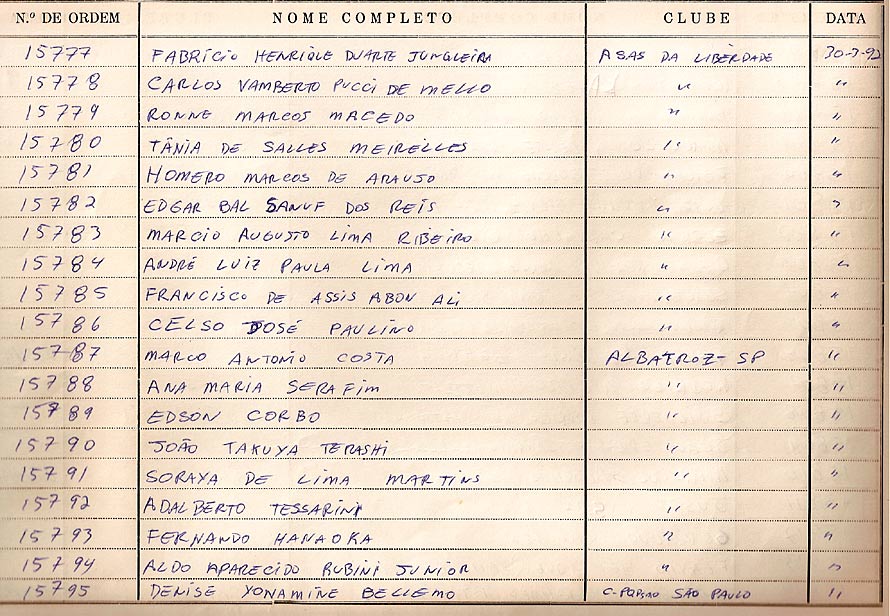 N.º DE ORDEM NOME COMPLETO CLUBE DATA
15777 FABRÍCIO HENRIQUE DUARTE JUNQUEIRA ASAS DA LIBERDADE 30-3-92
15778 CARLOS VAMBERTO PUCCI DE MELLO " "
15779 RONNE MARCOS MACEDO " "
15780 TÂNIA DE SALLES MEIRELLES " "
15781 HOMERO MARCOS DE ARAUJO " "
15782 EDGAR BAL SANUF DOS REIS " "
15783 MARCIO AUGUSTO LIMA RIBEIRO " "
15784 ANDRÉ LUIZ PAULA LIMA " "
15785 FRANCISCO DE ASSIS ABON ALI " "
15786 CELSO JOSÉ PAULINO " "
15787 MARCO ANTONIO COSTA ALBATROZ- SP "
15788 ANA MARIA SERAFIM " "
15789 EDSON CORBO " "
15790 JOÃO TAKUYA TERASHI " "
15791 SORAYA DE LIMA MARTINS " "
15792 ADALBERTO TESSARINI " "
15793 FERNANDO HANAOKA " "
15794 ALDO APARECIDO RUBINI JUNIOR " "
15795 DENISE YONAMINE BELLEMO SÃO PAULO "